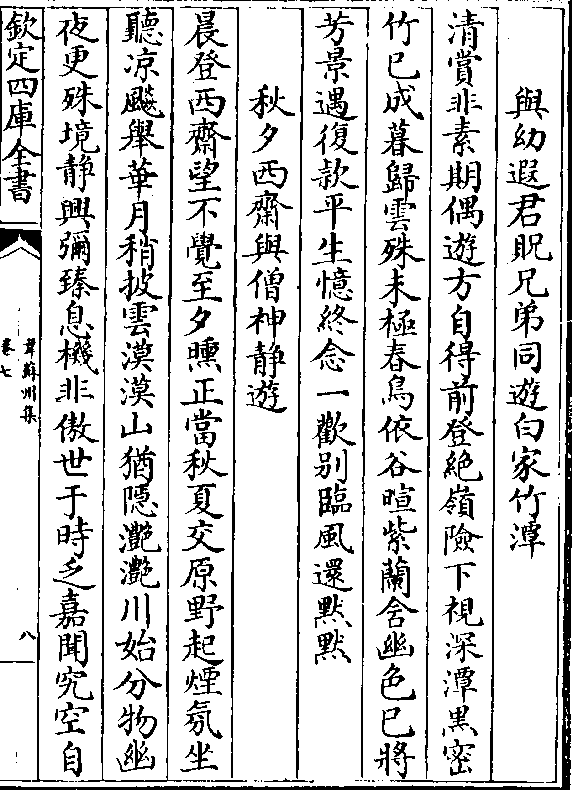 與幼遐君貺兄弟同遊白家竹潭
清賞非素期偶遊方自得前登絶嶺險下視深潭黒密
竹已成暮歸雲殊未極春鳥依谷暄紫蘭含幽色已將
芳景遇復款平生憶終念一歡别臨風還黙黙
秋夕西齋與僧神静遊
晨登西齋望不覺至夕曛正當秋夏交原野起煙氛坐
聽凉飈舉華月稍披雲漠漠山猶隱灧灧川始分物幽
夜更殊境静興彌臻息機非傲世于時乏嘉聞究空自
欽定四庫全書
韋蘇州集
卷七
八